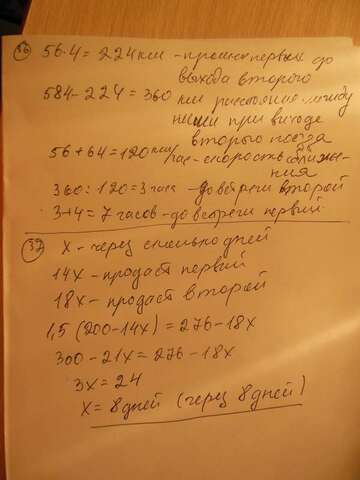 36 56·4=224 км - прошел первый до
выхода второго
584-224=360 км расстояние между
ними при выходе
второго поезда
56+64=120 км/час - скорость сближе-
ния
360:120=3 часа - до встречи второй
3+4=7 часов - до встречи первый
37 х - через сколько дней
14х - продаст первый
18х - продаст второй
1,5(200-14х)=276-18х
300-21х=276-18х
3х=24
х=8 дней (через 8 дней)